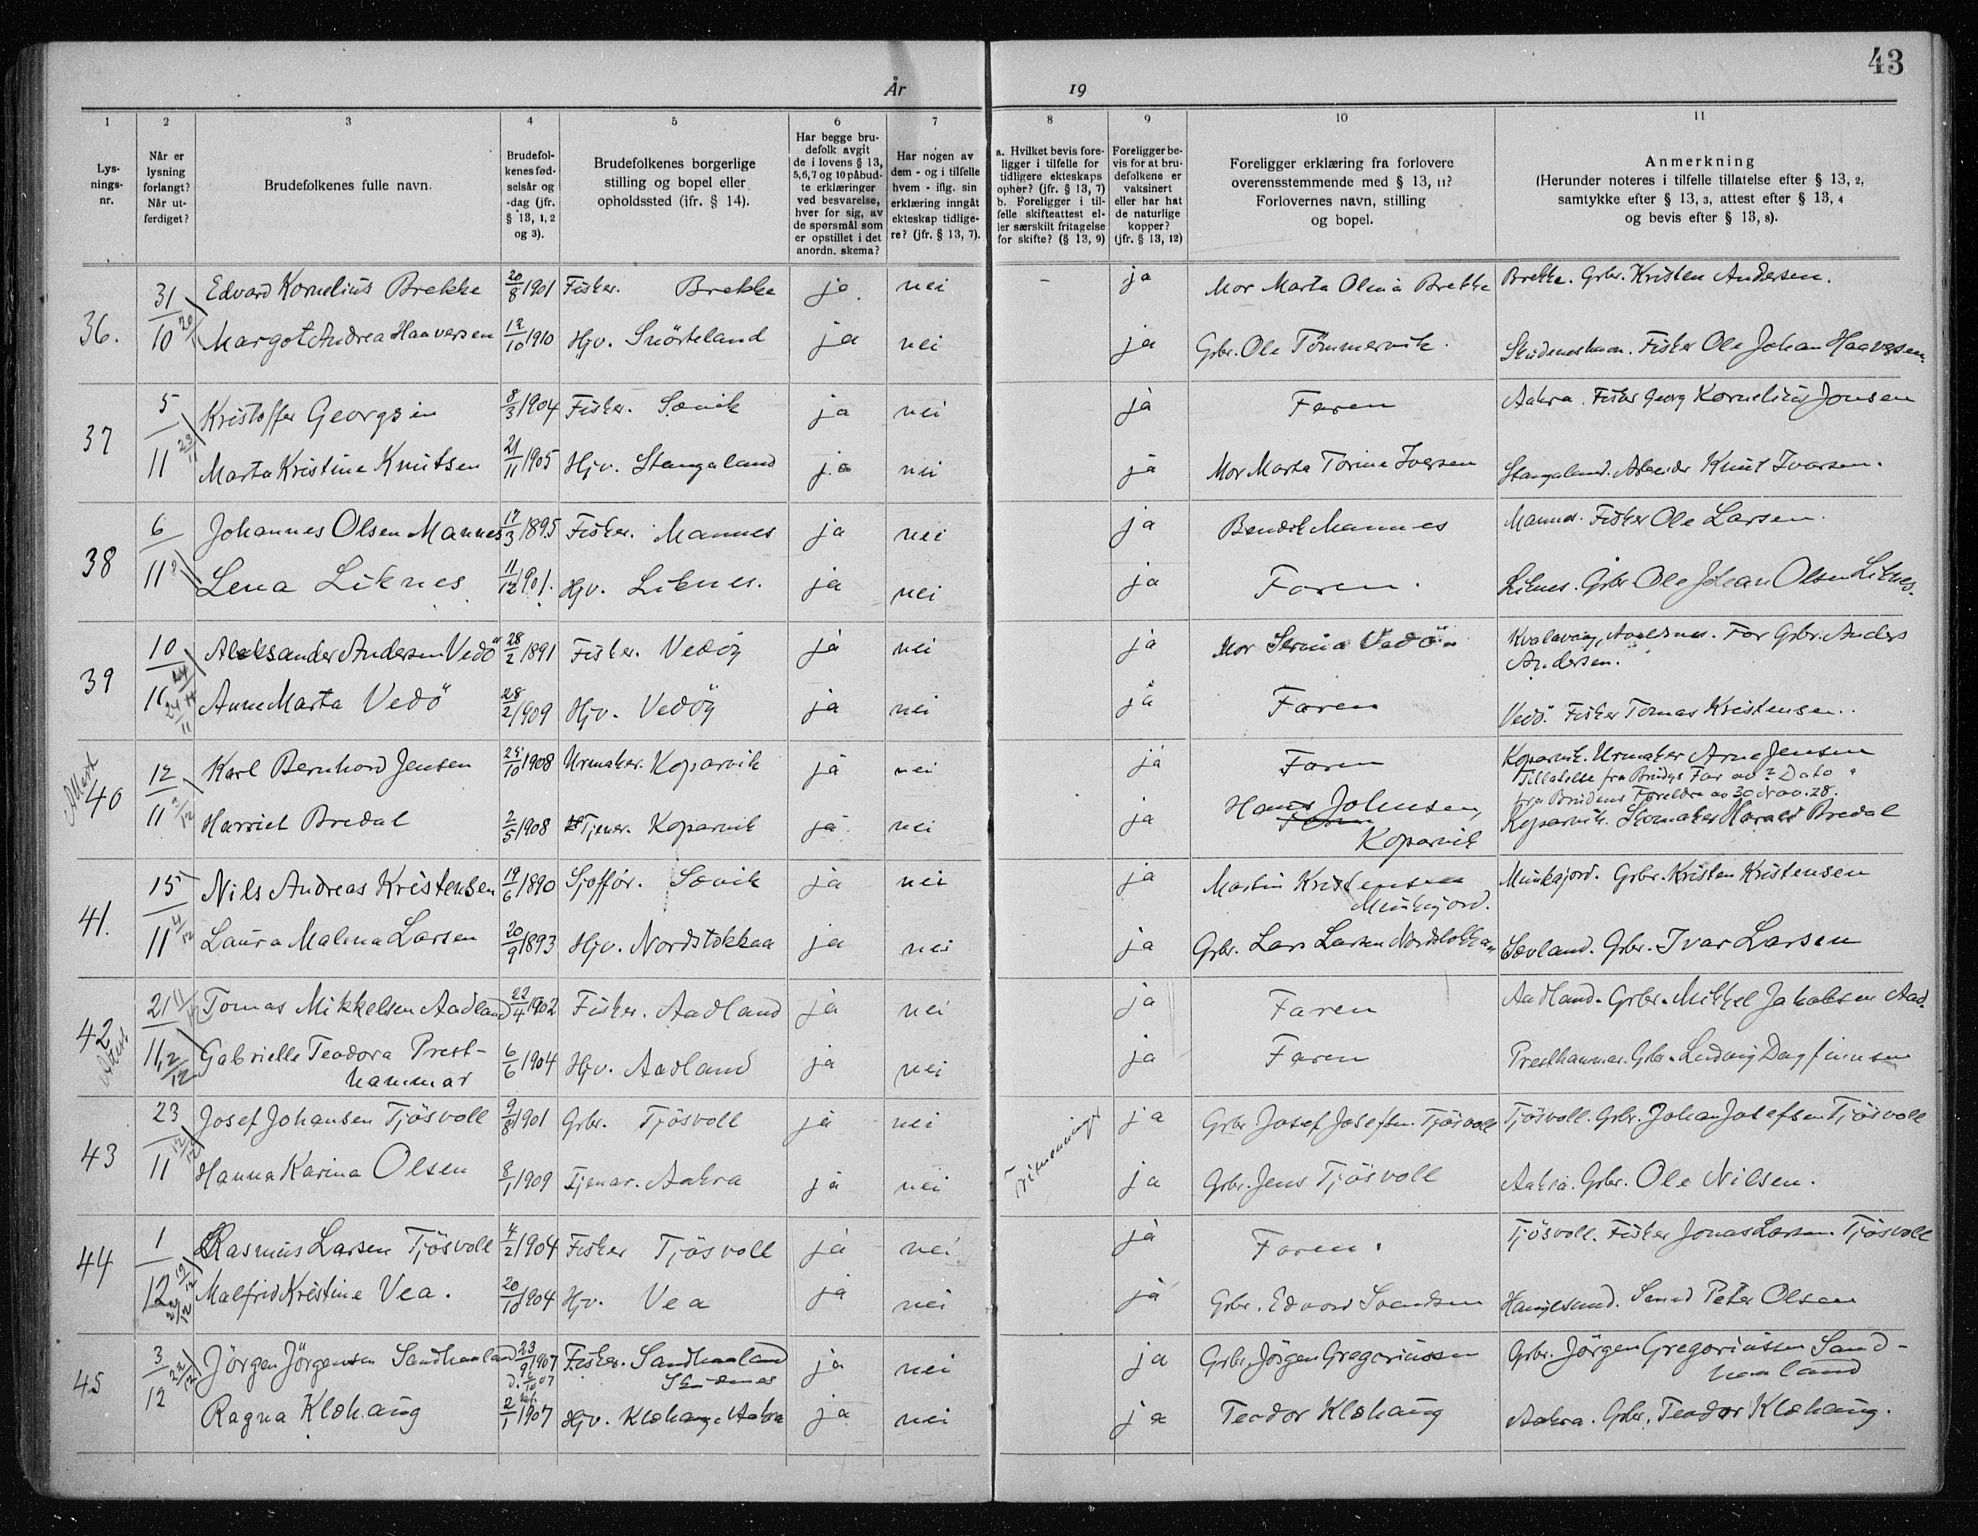 43
År 19
1 2 3 4 5 6 7 8 9 10 11
Lys-
nings-
nr.
Når er
lysning
forlangt?
Når ut-
ferdiget?
Brudefolkenes fulle navn.
Brudefol-
kenes fød-
selsår og
-dag (jfr.
§ 13, 1, 2
og 3).
Brudefolkenes borgerlige
stilling og bopel eller
opholdssted (jfr. § 14).
Har begge bru-
defolk avgit
de i lovens § 13,
5, 6, 7 og 10 påbud-
te erklæringer
ved besvarelse,
hver for sig, av
de spørsmål som
er opstillet i det
anordn. skema?
Har nogen av
dem - og i tilfelle
hvem - iflg. sin
erklæring inngåt
ekteskap tidlige-
re? (jfr. § 13, 7).
a. Hvilket bevis fore-
ligger i tilfelle for
tidligere ekteskaps
ophør? (jfr. § 13, 7)
b. Foreligger i til-
felle skifteattest el-
ler særskilt fritagelse
for skifte? (§ 13, 9)
Foreligger be-
vis for at bru-
defolkene er
vaksinert
eller har hat
de naturlige
kopper?
(jfr. § 13, 12)
Foreligger erklæring fra forlovere
overensstemmende med § 13, 11?
Forlovernes navn, stilling
og bopel.
Anmerkning
(Herunder noteres i tilfelle tillatelse efter § 13, 2,
samtykke efter § 13, 3, attest efter § 13, 4
og bevis efter § 13, 8).
36. 31/10 20/11 Edvard Kornelius Brekke 20/8 1901 Fisker. Brekke ja nei - ja Mor Marta Olina Brekke Brekke. Grbr. Kristen Andersen.
Margot Andrea Haaversen 12/10 1910 Hjv. Snörteland ja nei ja Grbr. Ole Tömmervik. Skudeneshavn. Fisker Ole Johan Haaversen.
37 5/11 23/11 Kristoffer Georgsen 8/3 1904 Fisker. Sævik ja nei ja Faren Aakra. Fisker Georg Kornelius Jonsen
Marta Kristine Knutsen 21/11 1905 Hjv. Stangaland ja nei ja Mor Marta Torine Iversen Stangeland. Arbeider Knut Ivarsen.
38 6/11 Johannes Olsen Mannes 17/3 1895 Fisker. Mannes ja nei ja Bendik Mannes Mannes. Fisker Ole Larsen.
Lena Liknes 11/12 1901. Hjv. Liknes. ja nei ja Faren. Liknes. Grbr Ole Johan Olsen Liknes.
39 10/11 24/11 Aleksander Andersen Vedö 28/2 1891 Fisker. Vedöy ja nei ja Mor Serina Vedö. Kvalavaag, Avaldsnes. Far Grbr. Anders
Andersen.
Anne Marta Vedö 28/2 1909 Hjv. Vedöy ja nei ja Faren Vedö. Fisker Tomas Kristensen.
Attest
40 12/11 3/12 Karl Bernhard Jensen 25/10 1908 Urmaker. Koparvik ja nei ja Faren Koparvik. Urmaker Arne Jensen
Tillatelse fra Brudgs Far av ? Dato
fra Brudens Foreldre av 30 Nov. 28.
Harriet Bredal 2/5 1908 Tjener. Koparvik ja nei ja Hans Johnsen, Koparvik. Skomaker Harald Bredal
Faren
Koparvik
41. 15/11 4/12 Nils Andreas Kristensen 19/6 1890 Sjofför. Sævik ja nei ja Martin Kristensen Munkejord. Grbr. Kristen Kristensen
Munkejord.
Laura Malena Larsen 20/9 1893 Hjv. Nordstokkaa ja nei ja Grbr. Lars Larsen Nordstokkaa Sævland. Grbr. Ivar Larsen
42 21/11 Tomas Mikkelsen Aadland 22/4 1902 Fisker. Aadland ja nei ja Faren Aadland. Grbr. Mikkel Jakobsen Aad.
Attest 2/12 Gabrielle Teodora Prest-
hammar 6/6 1904 Hjv. Aadland ja nei ja Faren Presthammar. Grbr. Ludvig Dagfinnsen
43 23/11 12/12 Josef Johansen Tjösvoll 9/8 1901 Grbr. Tjösvoll ja nei ja Grbr Josef Josefsen. Tjösvoll Tjösvoll. Grbr. Johan Josefsen Tjösvoll
Hanna Karina Olsen 8/1 1909 Tjener. Aakra ja nei ja Grbr. Jens Tjösvoll Aakra. Grbr. Ole Nilsen.
44 1/12 19/12 Rasmus Larsen Tjösvoll 4/2 1904 Fisker Tjösvoll ja nei ja Faren. Tjösvoll. Fisker Jonas Larsen. Tjösvoll
Malfrid Kristine Vea. 20/10 1904 Hjv. Vea ja nei ja Grbr. Edvard Svendsen Haugesund. Peter Olsen
45 3/12 22/12 Jörgen Jörgensen Sandhaaland 23/9 1907 Fisker. Sandhaaland ja nei ja Grbr. Jörgen Gregoriussen Grbr. Jörgen Gregoriussen Sand-
Skudenes haaland
Ragna Klæhaug 2/1 1907 Hjv. Klæhaug. Aakra ja nei ja Teodor Klæhaug Aakra. Grbr. Teodor Klæhaug.